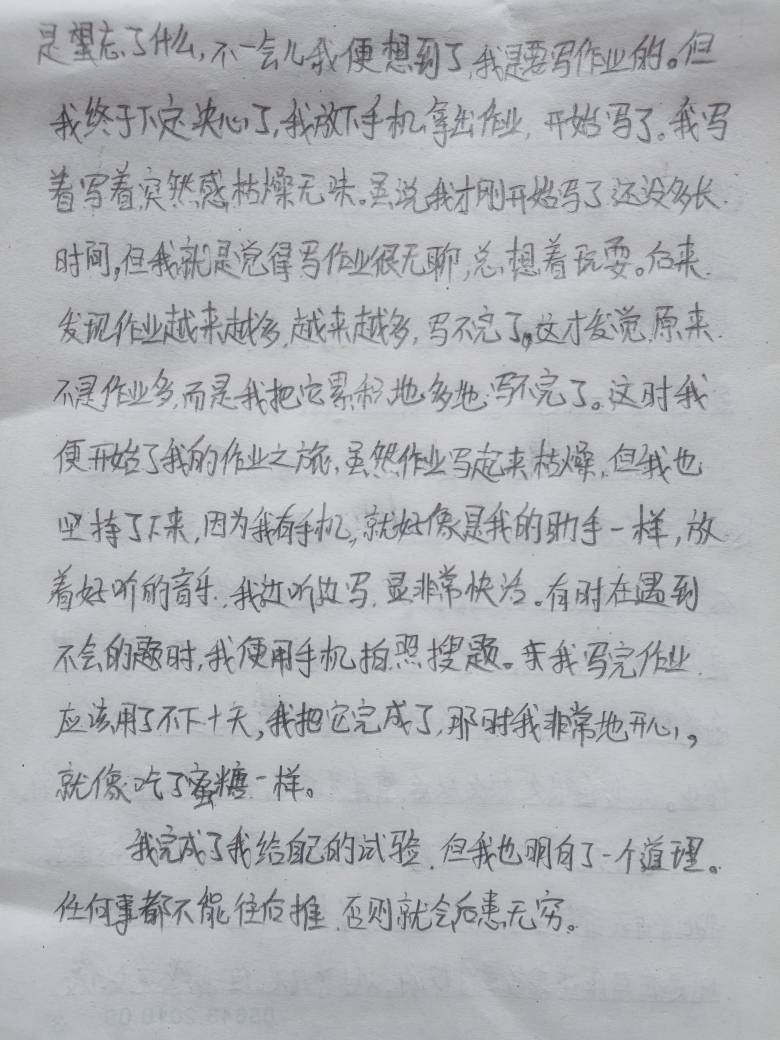 是望忘了什么,不一会儿我便想到了,我是要写作业的。但
我终于下定决心了,我放下手机拿出作业,开始写了。我写
着写着突然感枯燥无味。虽说我才刚开始写了还没多长
时间,但我就是觉得写作业很无聊,总想着玩耍。后来
发现作业越来越多,越来越多,写不完了,这才发觉原来
不是作业多,而是我把它累积地多地写不完了。这时我
便开始了我的作业之旅,虽然作业写起来枯燥,但我也
坚持了下来,因为我有手机,就好像是我的助手一样,放
着好听的音乐,我边听边写,显非常快活。有时在遇到
不会的题时,我便用手机拍照搜题。来我写完作业
应该用了不下十天,我把它完成了,那时我非常地开心,
就像吃了蜜糖一样。
我完成了我给自己的试验,但我也明白了一个道理。
任何事都不能往后推,否则就会后患无穷。